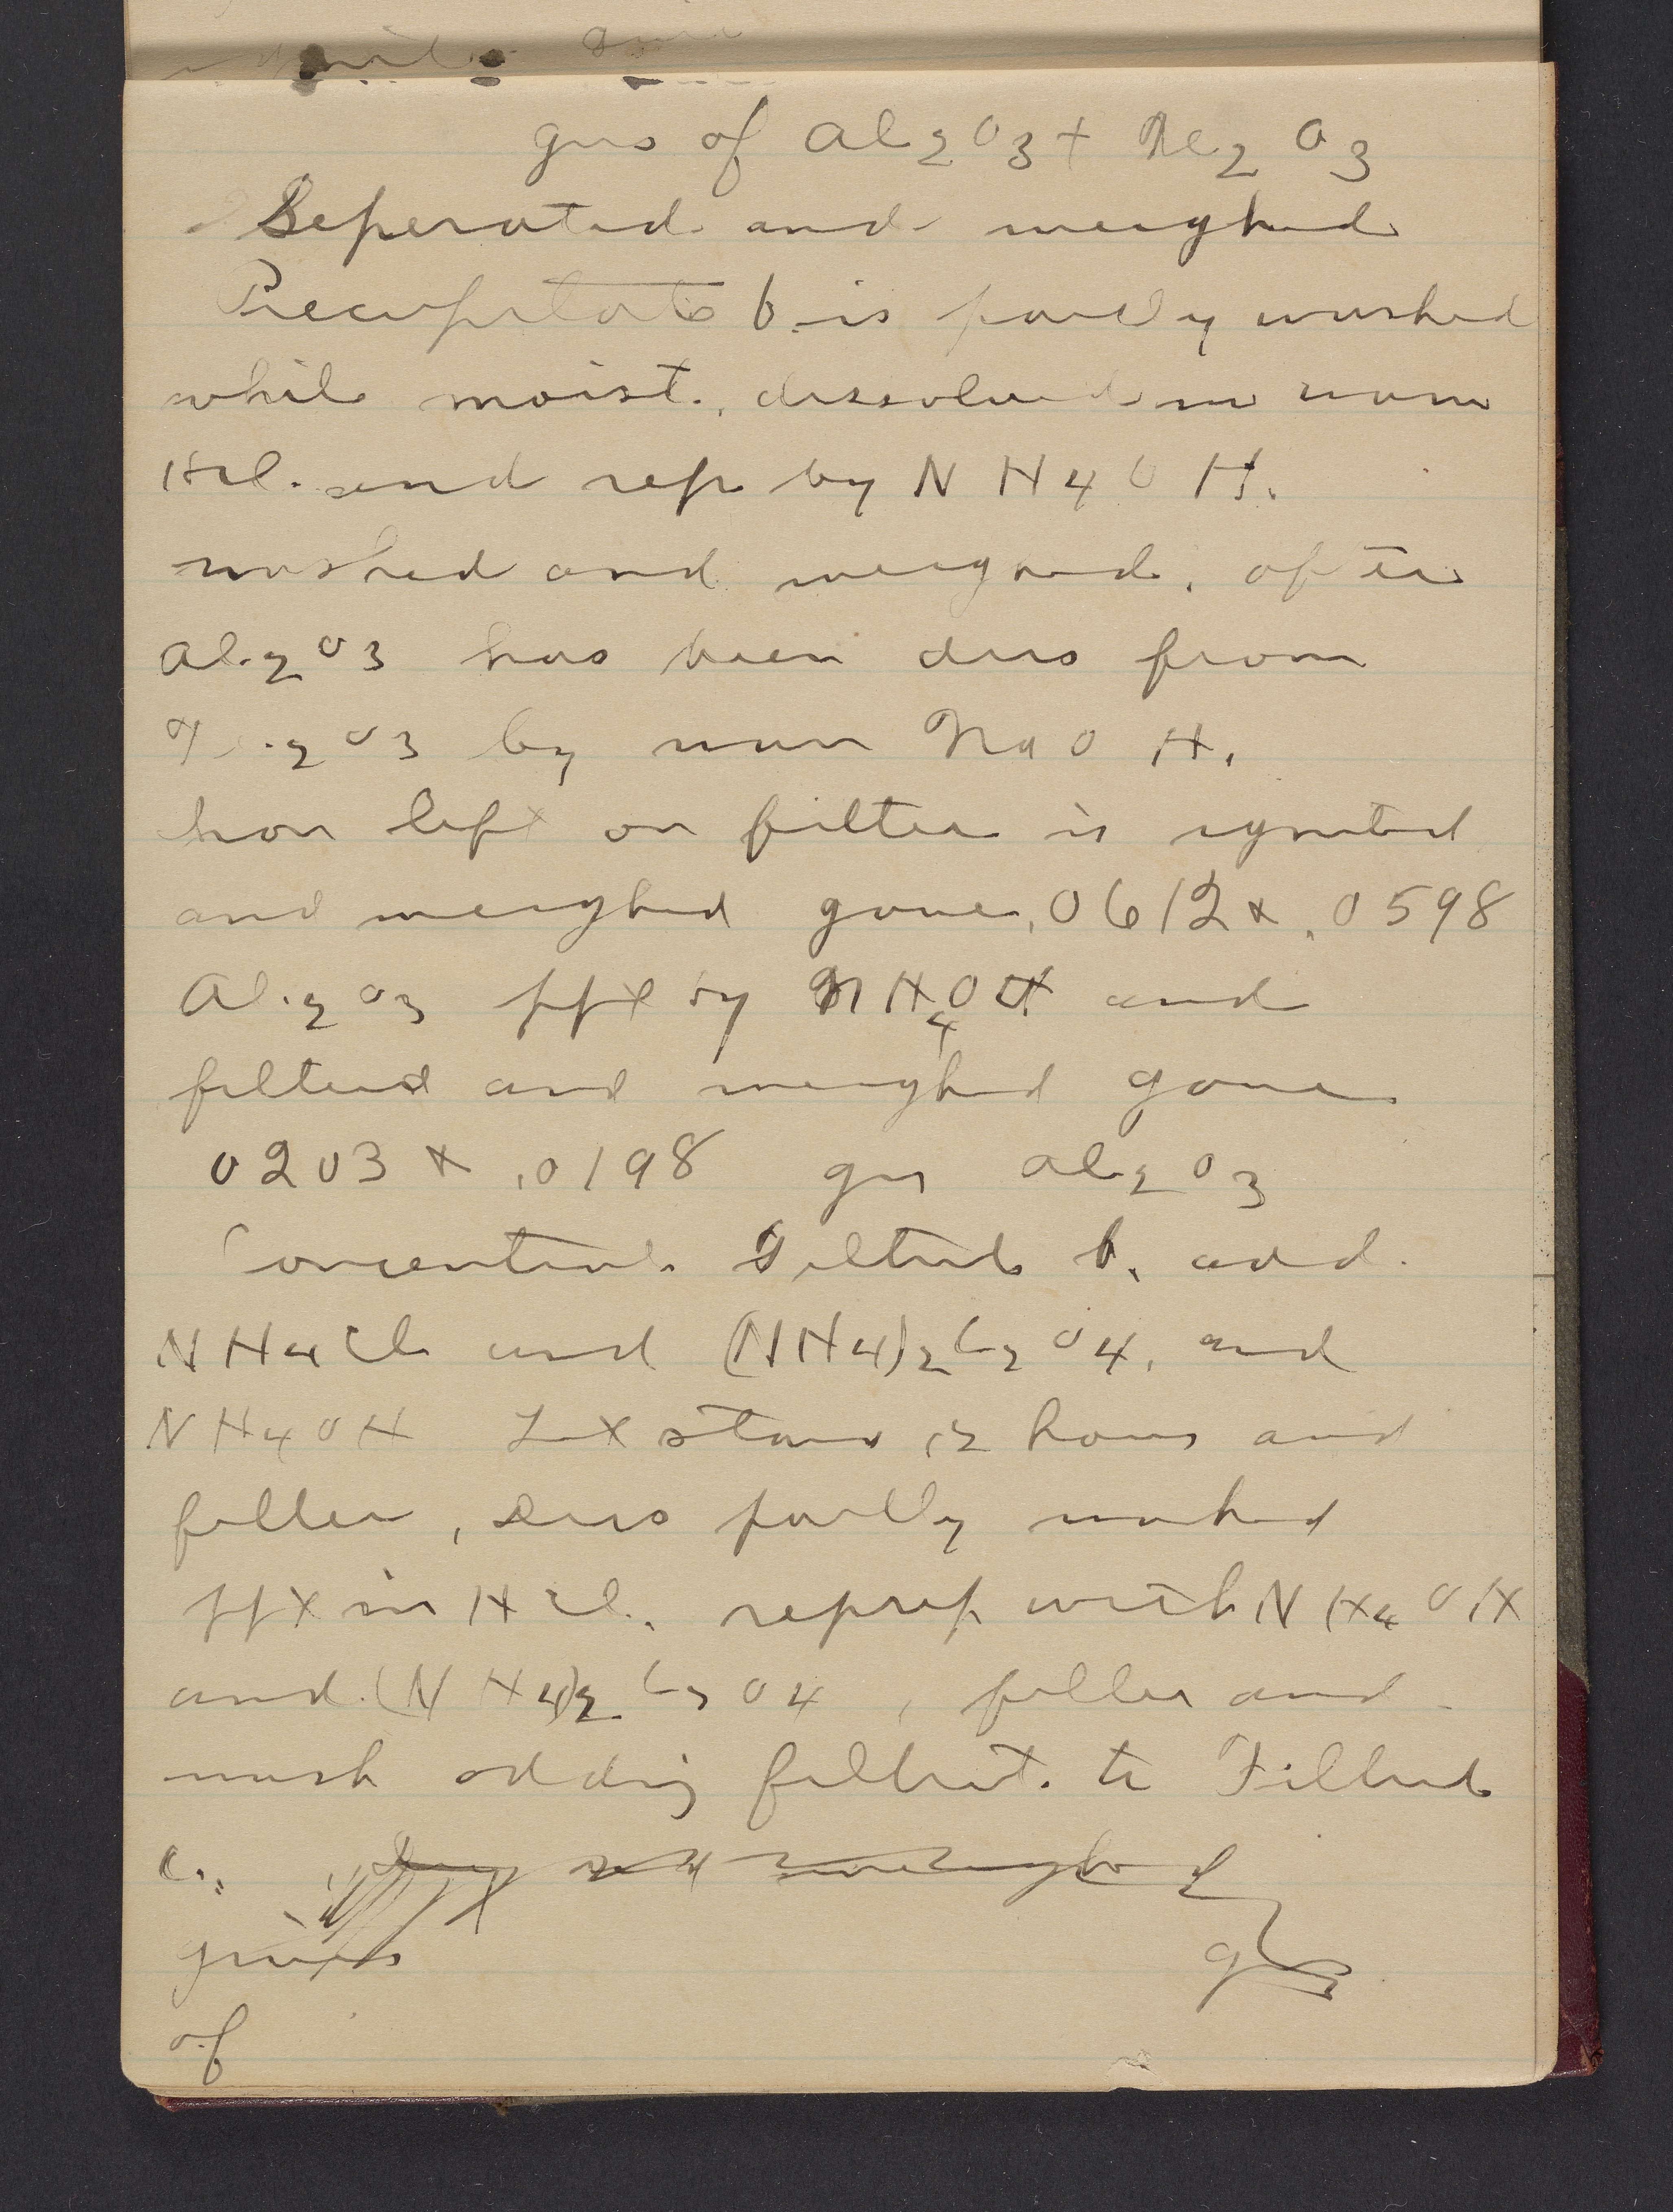 gms of Al2O3 + Fe2O3
Seperated and weighed
Precipitate b. is partly washed
while moist, dissolved in warm
HCl. and rep by NH4OH.
washed and weighed. after
Al2O3 has been diss from
Fe2O3 by warm NaOH.
Iron left on filter is ignited
and weighed gave .0612 & .0598
Al2O3 ppt by NH4OH and
filtered and weighed gave
0203 & .0198 gms Al2O3
Concentrate Filtrate b. add
NH4Cl and (NH4)2C2O4, and
NH4OH Let stand 12 hours and
filter, Diss partly washed
ppt in HCl. reprep with NH4OH
and (NH4)2C2O4, filter and
wash adding filtrate to Filtrate
c. and weighed
gives
of